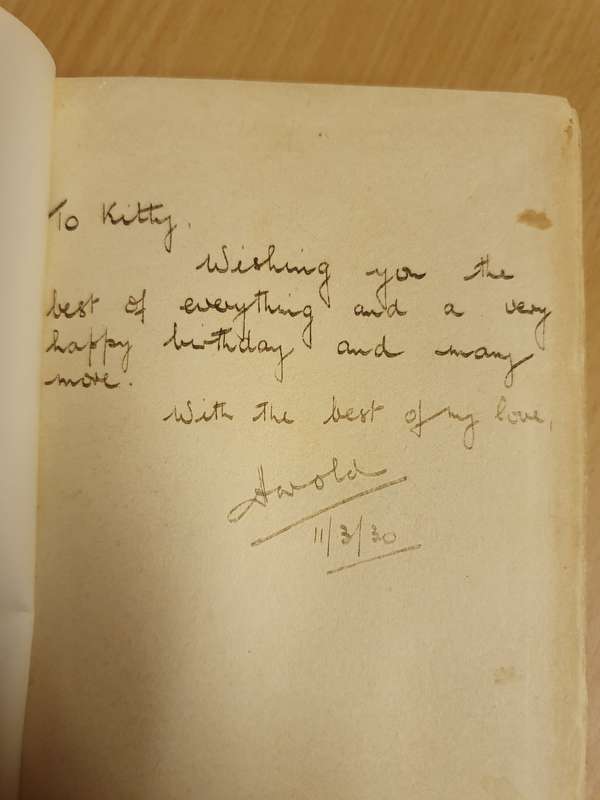 To Kitty,
Wishing you the
best of everything and a very
happy birthday and many
more.
With the best of my love,
Harold
11/3/30